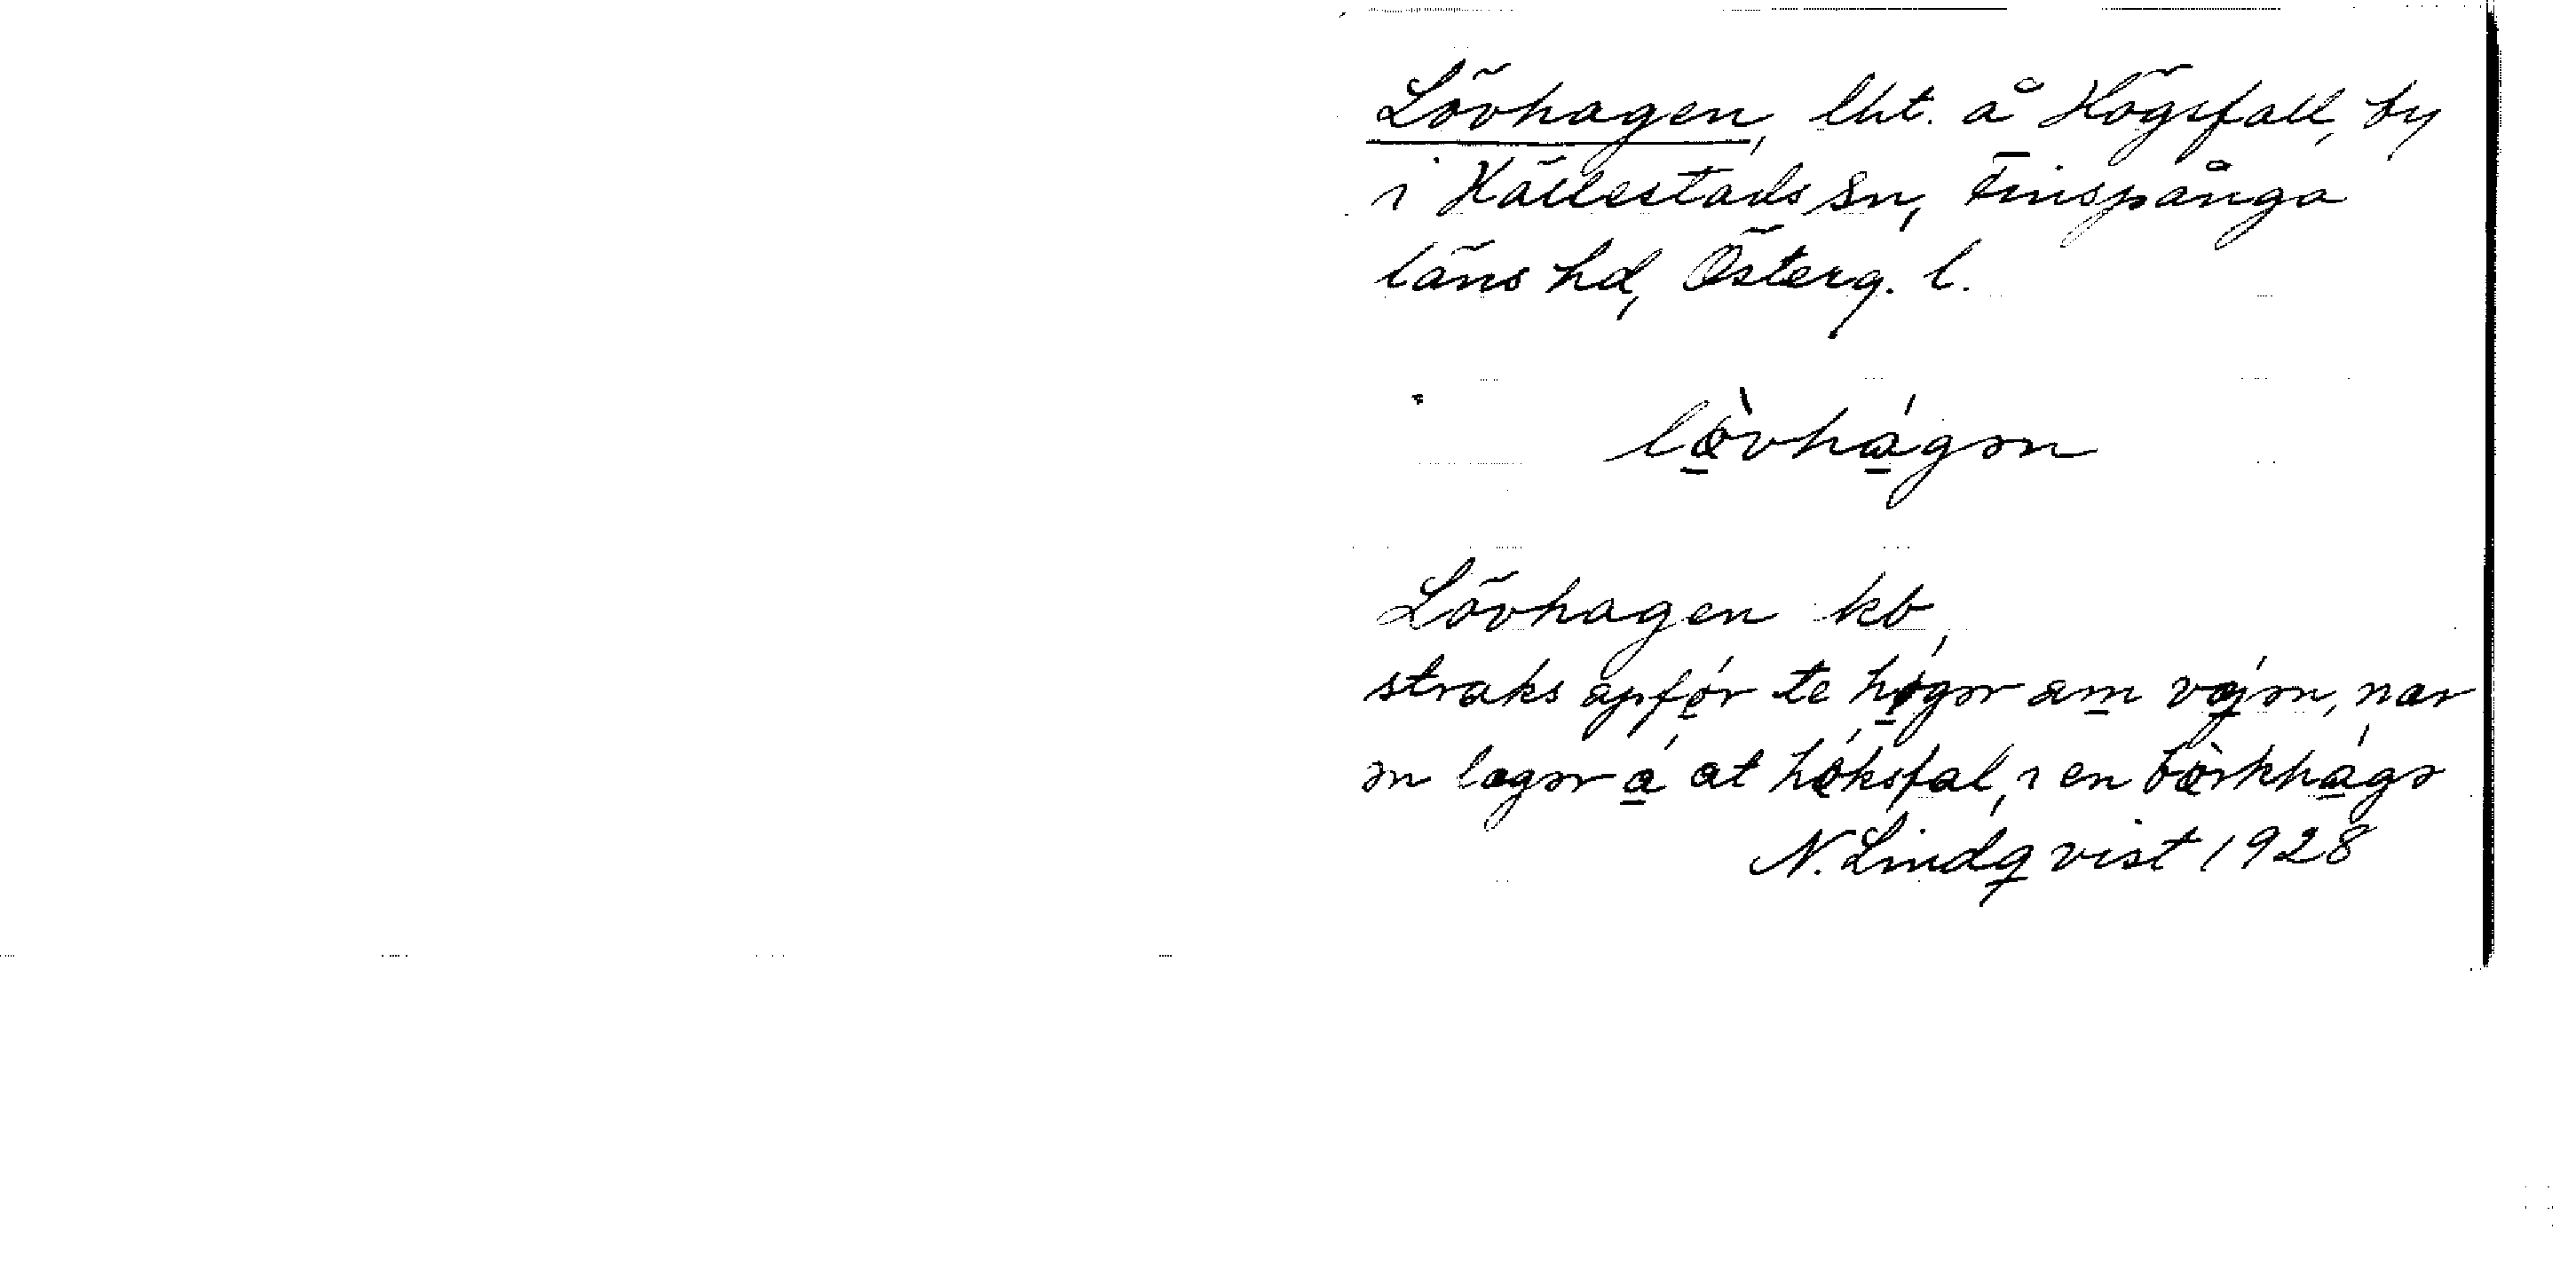 Lövhagen, lht. å Högsfall, by
i Hällestads sn, Finspånga
läns hd, Österg. l.
lø̀vhágən
Lövhagen kb,
straks apfǿr te hǿgər am vǽjən, nær
ən lægər á at hǿksfal, i en bø̀rkhágə
N. Lindqvist 1928